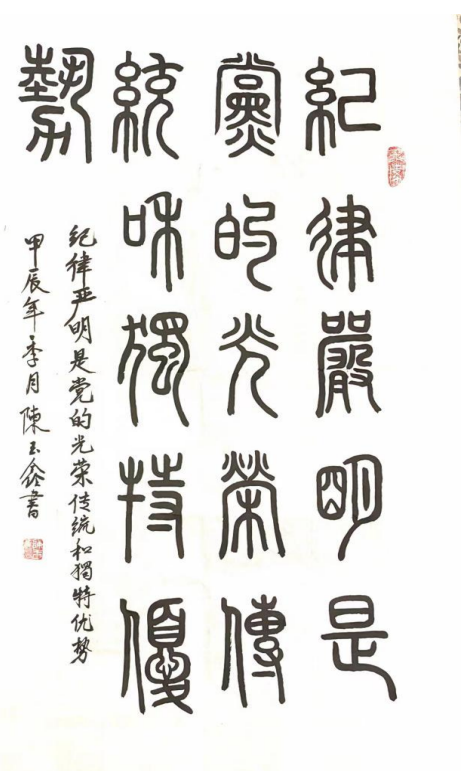 紀律嚴明是
黨的光榮傳
統和獨特優
勢
纪律严明是党的光荣传统和獨特优势
甲辰年季月陳玉鑫書